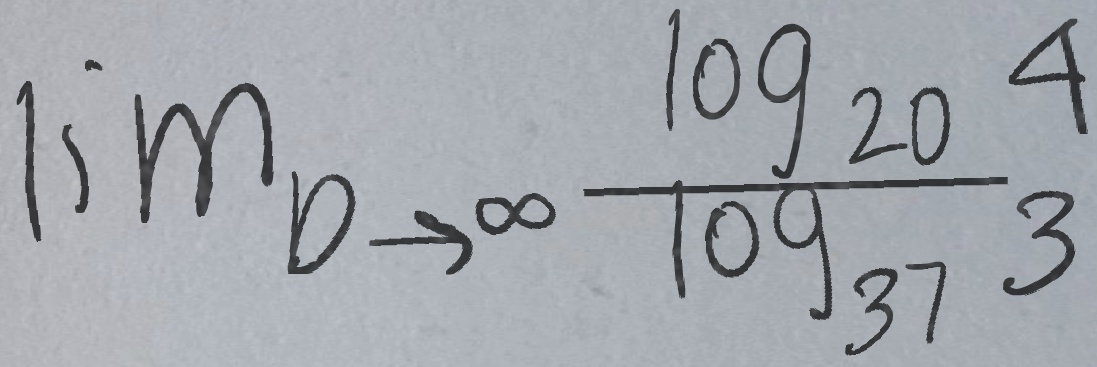 \lim_{D \to \infty} \frac{\log_{20} 4}{\log_{37} 3}